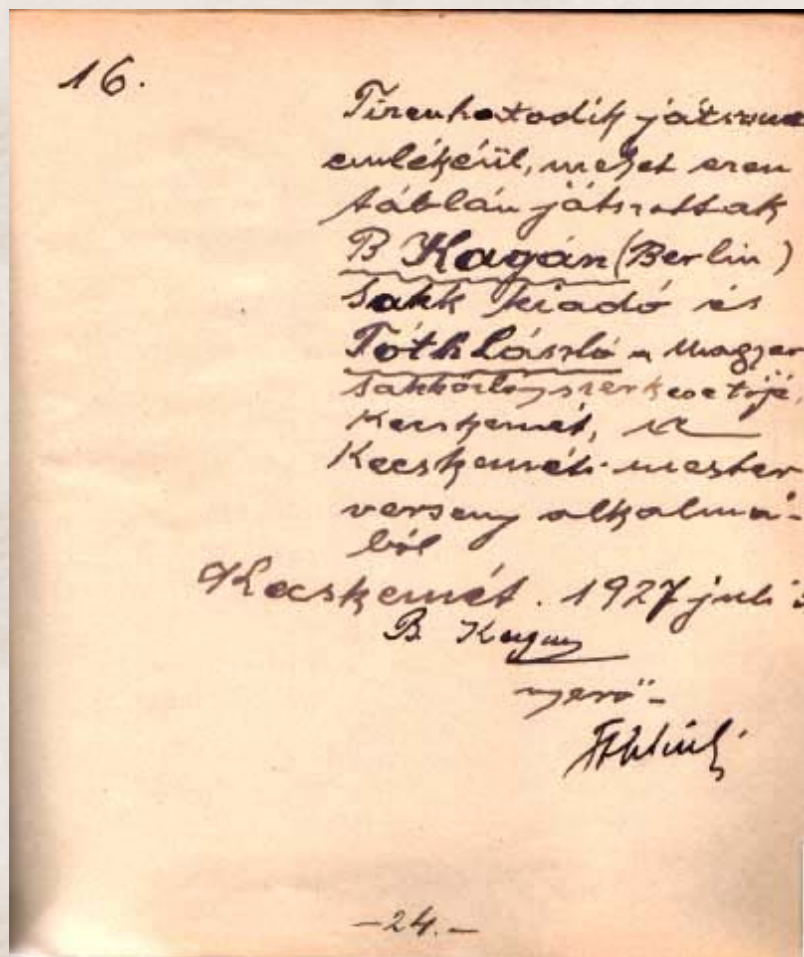 16.
Tizenhatodik játszma
emlékéül, melyet ezen
táblán játszottak
B Kagán (Berlin)
Sakk kiadó és
Tóth László a Magyar
sakkvilág szerkesztője,
Kecskemét, a
Kecskeméti mester
verseny alkalmá-
ból
Kecskemét. 1927 juli
B. Kagan
nyerő-
-24.-